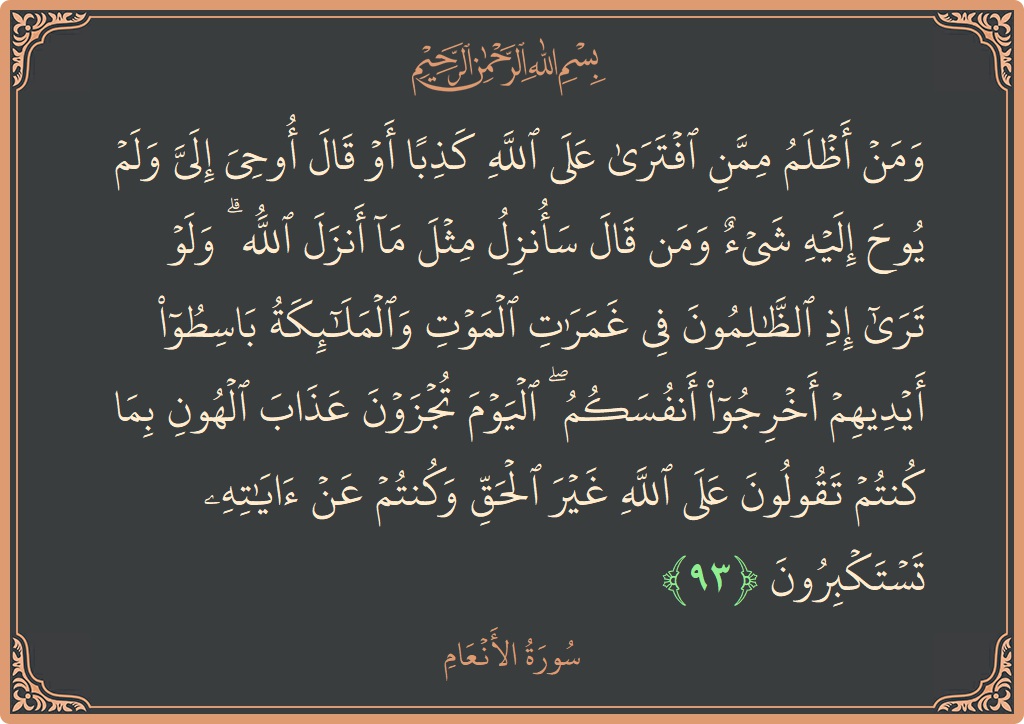 بِسْمِ اللَّهِ الرَّحْمَٰنِ الرَّحِيمِ
وَمَنۡ أَظۡلَمُ مِمَّنِ ٱفۡتَرَىٰ عَلَى ٱللَّهِ كَذِبًا أَوۡ قَالَ أُوحِيَ إِلَيَّ وَلَمۡ
يُوحَ إِلَيۡهِ شَيۡءٌ وَمَن قَالَ سَأُنزِلُ مِثۡلَ مَآ أَنزَلَ ٱللَّهُۗ وَلَوۡ
تَرَىٰٓ إِذِ ٱلظَّٰلِمُونَ فِي غَمَرَٰتِ ٱلۡمَوۡتِ وَٱلۡمَلَٰٓئِكَةُ بَاسِطُوٓاْ
أَيۡدِيهِمۡ أَخۡرِجُوٓاْ أَنفُسَكُمُۖ ٱلۡيَوۡمَ تُجۡزَوۡنَ عَذَابَ ٱلۡهُونِ بِمَا
كُنتُمۡ تَقُولُونَ عَلَى ٱللَّهِ غَيۡرَ ٱلۡحَقِّ وَكُنتُمۡ عَنۡ ءَايَٰتِهِۦ
تَسۡتَكۡبِرُونَ ﴿٩٣﴾
سُورَةُ الأَنۡعَامِ